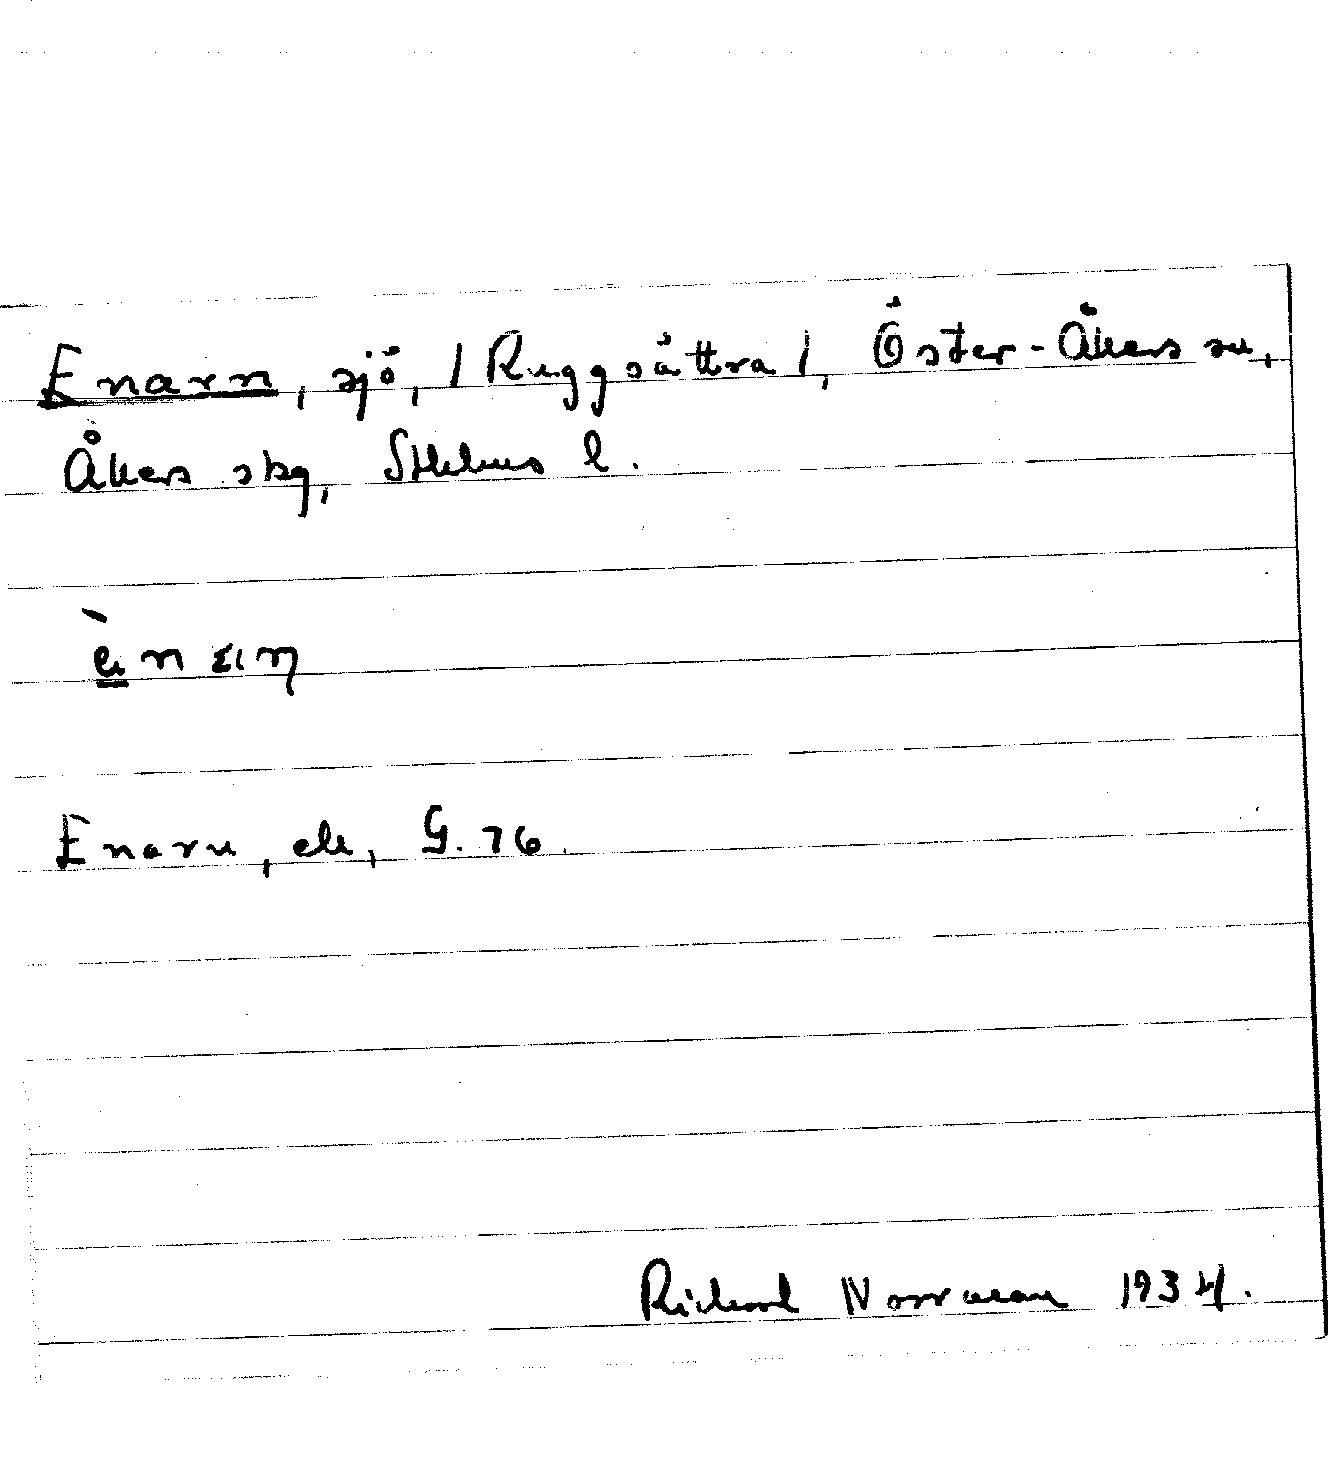 Enarn, sjö, / Ruggsättra /, Öster-Åkers sn,
Åkers skg, Sthlms l.
Enarn, ek, G. 76.
Richard Norrman 1934.